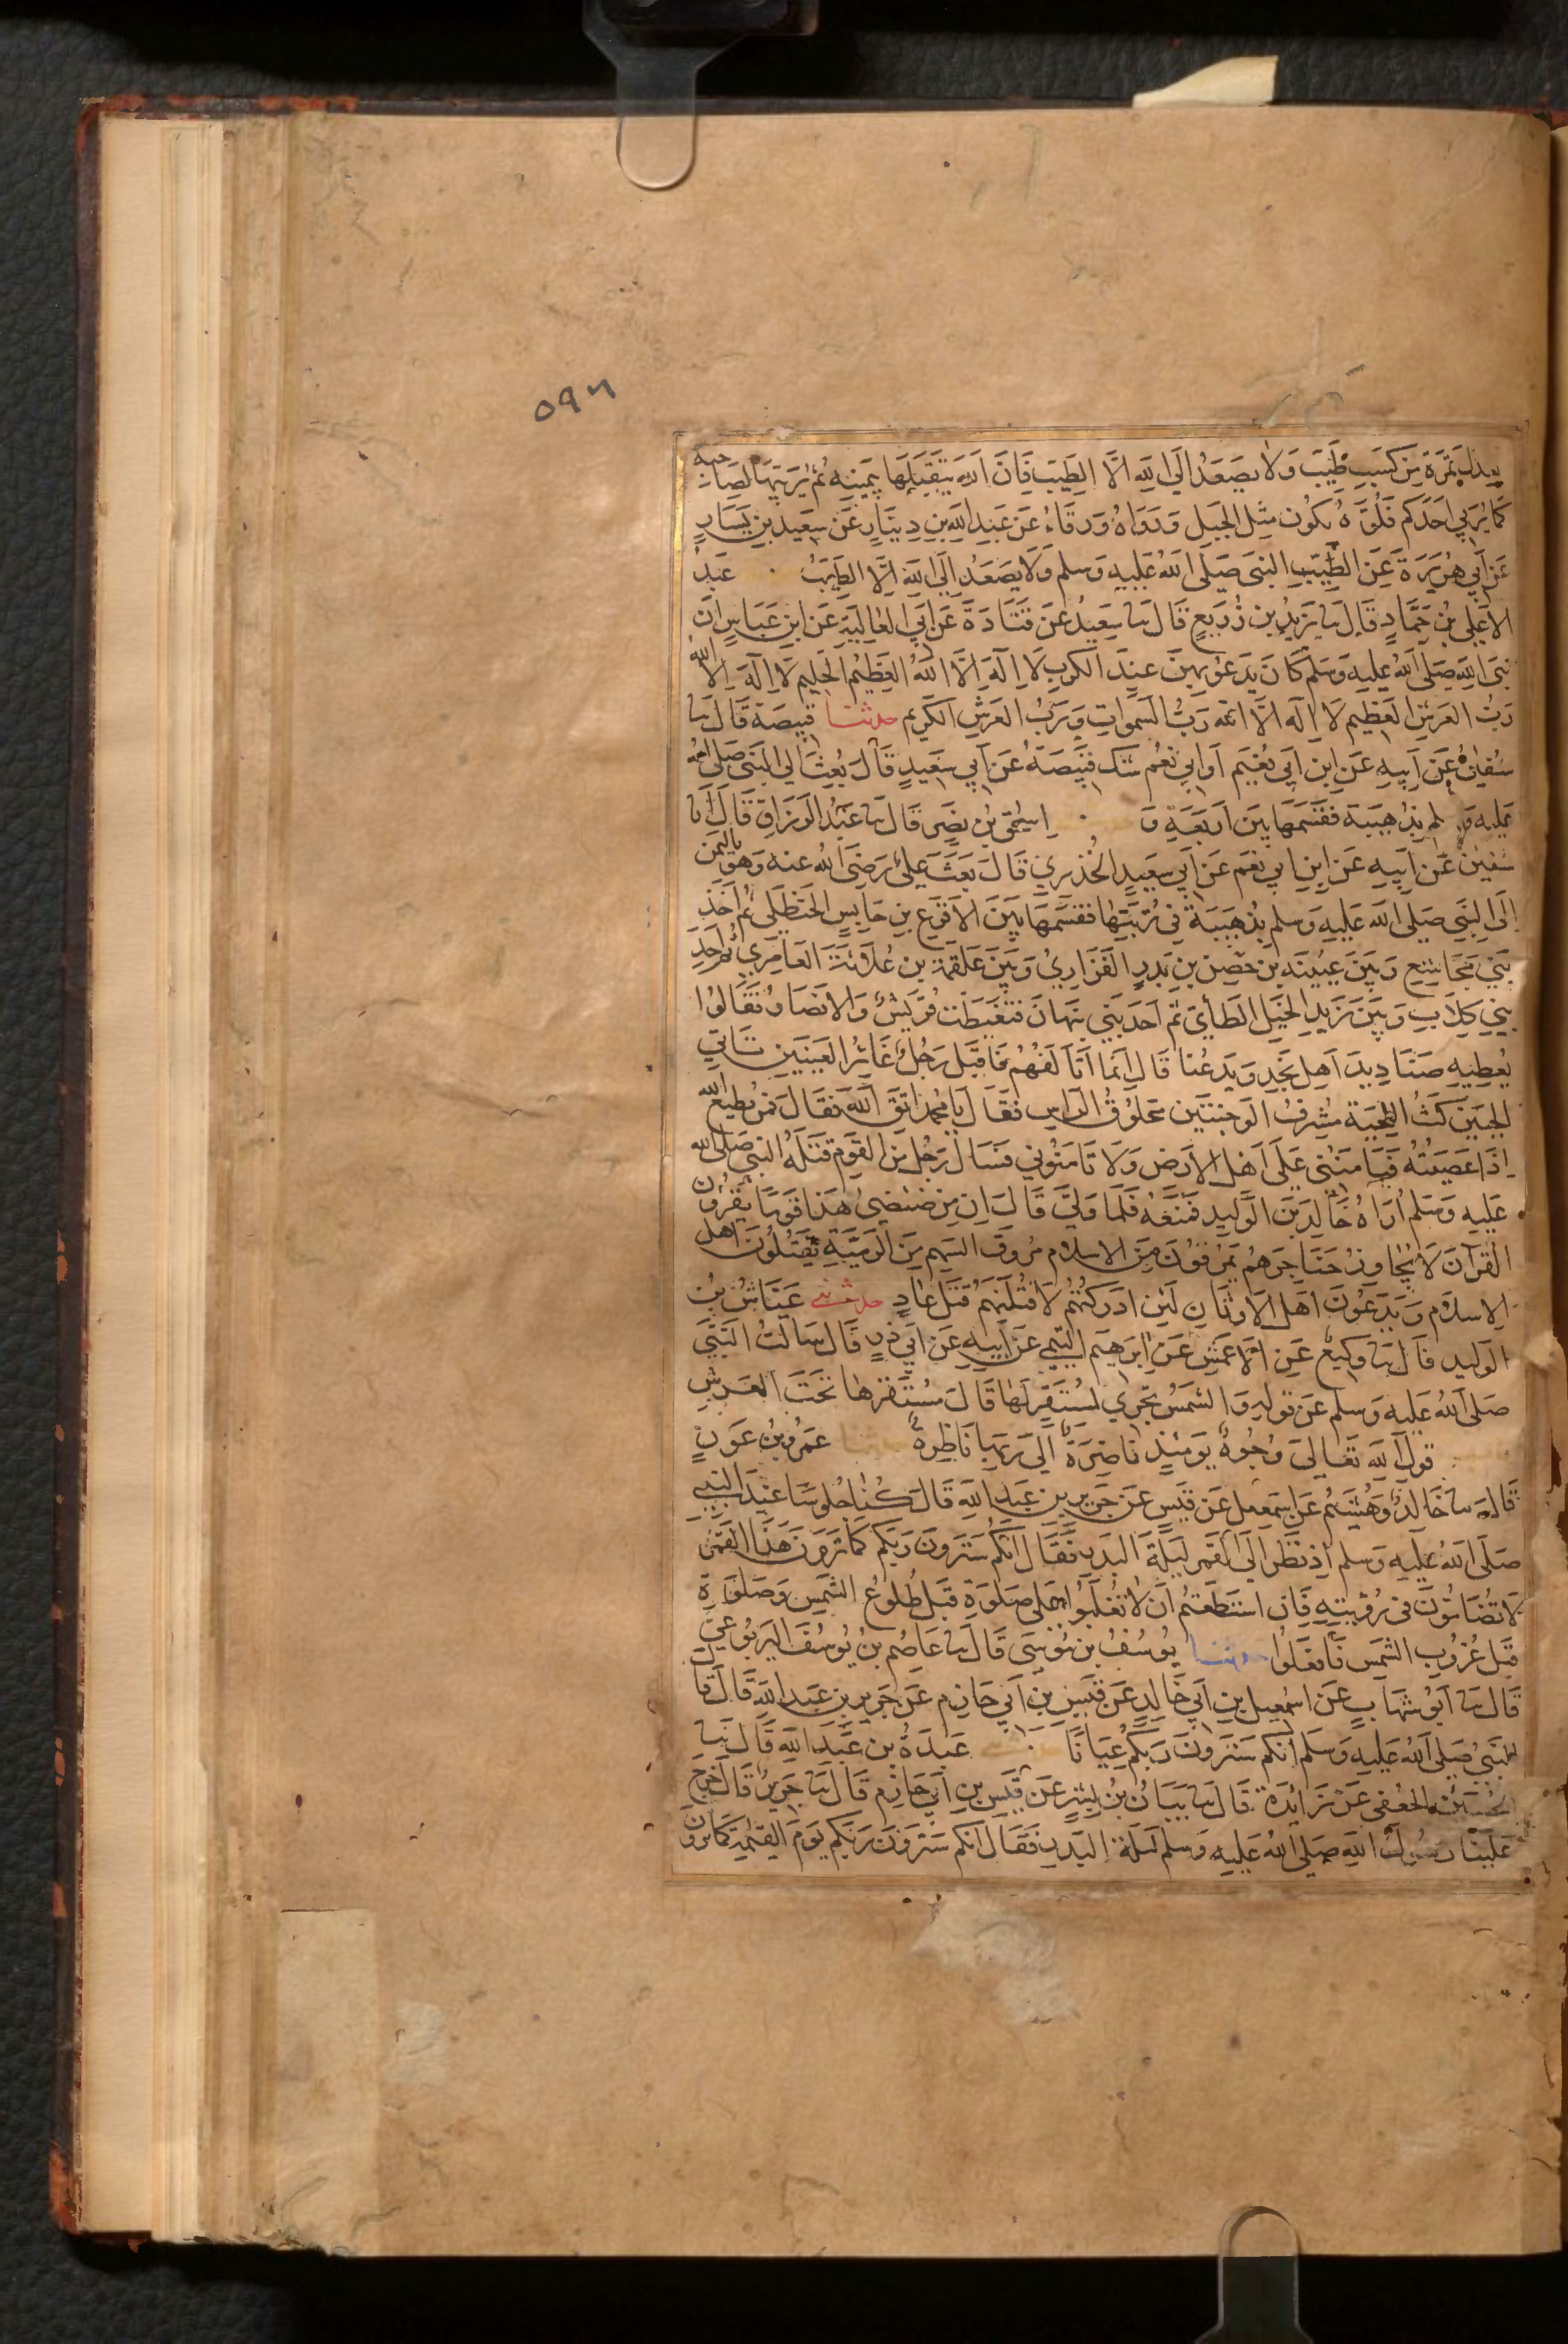 ٥٩٦
بعدل تمرة من كسب طيب ولا يصعد الى الله الا الطيب فان الله يتقبلها بيمينه ثم يربيها لصاحبه
كما يربي احدكم فلوه يكون مثل الجبل ورواه ورقاء عن عبد الله بن دينار عن سعيد بن يسار
عن ابي هريرة عن الطيب النبي صلى الله عليه وسلم ولا يصعد الى الله الا الطيب عبد
الاعلى بن حماد قال نا يزيد بن زريع قال نا سعيد عن قتادة عن ابي العالية عن ابن عباس ان
نبي الله صلى الله عليه وسلم كان يدعو بهن عند الكرب لا اله الا الله العظيم الحليم لا اله الا الله
رب العرش العظيم لا اله الا الله رب السموات ورب العرش الكريم حدثنا قبيصة قال نا
سفيان عن ابيه عن ابن ابي نعيم او ابي نعم شك قبيصة عن ابي سعيد قال بعث الى النبي صلى الله
عليه و لم بذهيبة فقسمها بين اربعة و اسحق بن نصر قال نا عبد الرزاق قال انا
سفين عن ابيه عن ابن ابي نعم عن ابي سعيد الخذري قال بعث علي رضى الله عنه وهو باليمن
الى النبي صلى الله عليه وسلم بذهيبة في تربتها فقسمها بين الاقرع بن حابس الحنظلي ثم احد
بني مجاشع وبين عيينه بن حصن بن بدر الفزاري وبين علقمة بن علاثة العامري ثم احد
بني كلاب وبين زيد الخيل الطأي ثم احد بني نبهان فتغيظت قريش والانصار فقالوا
يعطيه صناديد اهل نجد ويدعنا قال انما اتألفهم فاقبل رجل غائر العينين ناتي
الجبين كث اللحية مشرف الوجنتين محلوق الراس فقال يا محمد اتق الله فقال فمن يطيع الله
اذا عصيته فيامنني على اهل الارض ولا تامنوني فسال رجل من القوم قتله النبي صلى الله
عليه وسلم اراه خالد بن الوليد فمنعه فلما ولى قال ان من ضئضئ هذا قوما يقرؤن
القرآن لا يجاوز حناجرهم يمرقون من الاسلام مروق السهم من الرمية يقتلون اهل
الاسلام ويدعون اهل الاوثان لئن ادركتهم لاقتلنهم قتل عاد حدثني عياش بن
الوليد قال نا وكيع عن الاعمش عن ابرهيم التيمي عن ابيه عن ابي ذر قال سالت النبي
صلى الله عليه وسلم عن قوله والشمس تجري لمستقر لها قال مستقرها تحت العرش
قول الله تعالى وجوه يومئذ ناضرة الى ربها ناظرة حدثنا عمرو بن عون
قال نا خالد وهشيم عن اسمعيل عن قيس عن جرير بن عبد الله قال كنا جلوسا عند النبي
صلى الله عليه وسلم اذ نظر الى القمر ليلة البدر فقال انكم سترون ربكم كما ترون هذا القمر
لا تضامون في رؤيته فان استطعتم ان لا تغلبوا على صلوة قبل طلوع الشمس وصلوة
قبل غروب الشمس فافعلوا حدثنا يوسف بن موسى قال نا عاصم بن يوسف اليربوعي
قال نا ابو شهاب عن اسمعيل بن ابي خالد عن قيس بن ابي حازم عن جرير بن عبد الله قال قال
النبي صلى الله عليه وسلم انكم سترون ربكم عيانا عبدة بن عبد الله قال نا
حسين الجعفي عن زائدة قال نا بيان بن بشر عن قيس بن ابي حازم قال نا جرير قال خرج
علينا رسول الله صلى الله عليه وسلم ليلة البدر فقال انكم سترون ربكم يوم القيمة كما ترون